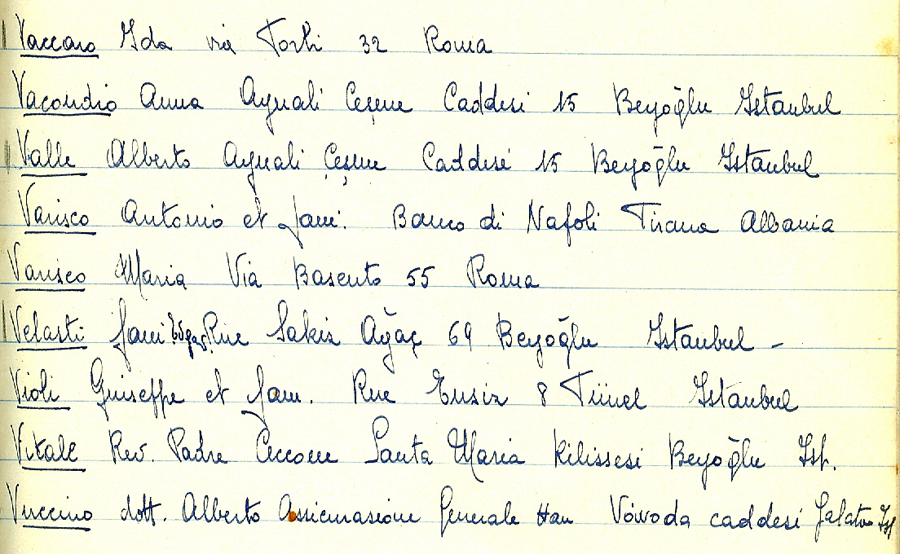 Vaccaro Ida via Forlì 32 Roma
Vacondio Anna Aynali Ceşme Caddesi 15 Beyoğlu Istanbul
Valle Alberto Aynali Çeşme Caddesi 15 Beyoğlu Istanbul
Varisco Antonio et fam. Banco di Napoli Tirana Albania
Varisco Maria Via Basento 55 Roma
Velasti fam Rue Sakiz Ağaç 69 Beyoğlu Istanbul -
Violi Guiseppe et fam. Rue Ensiz 8 Tünel Istanbul
Vitale Rev. Padre Ceccone Santa Maria Kilissesi Beyoğlu Ist.
Vuccino dott. Alberto Assicurasione Generale Han Voivoda caddesi Galata Ist